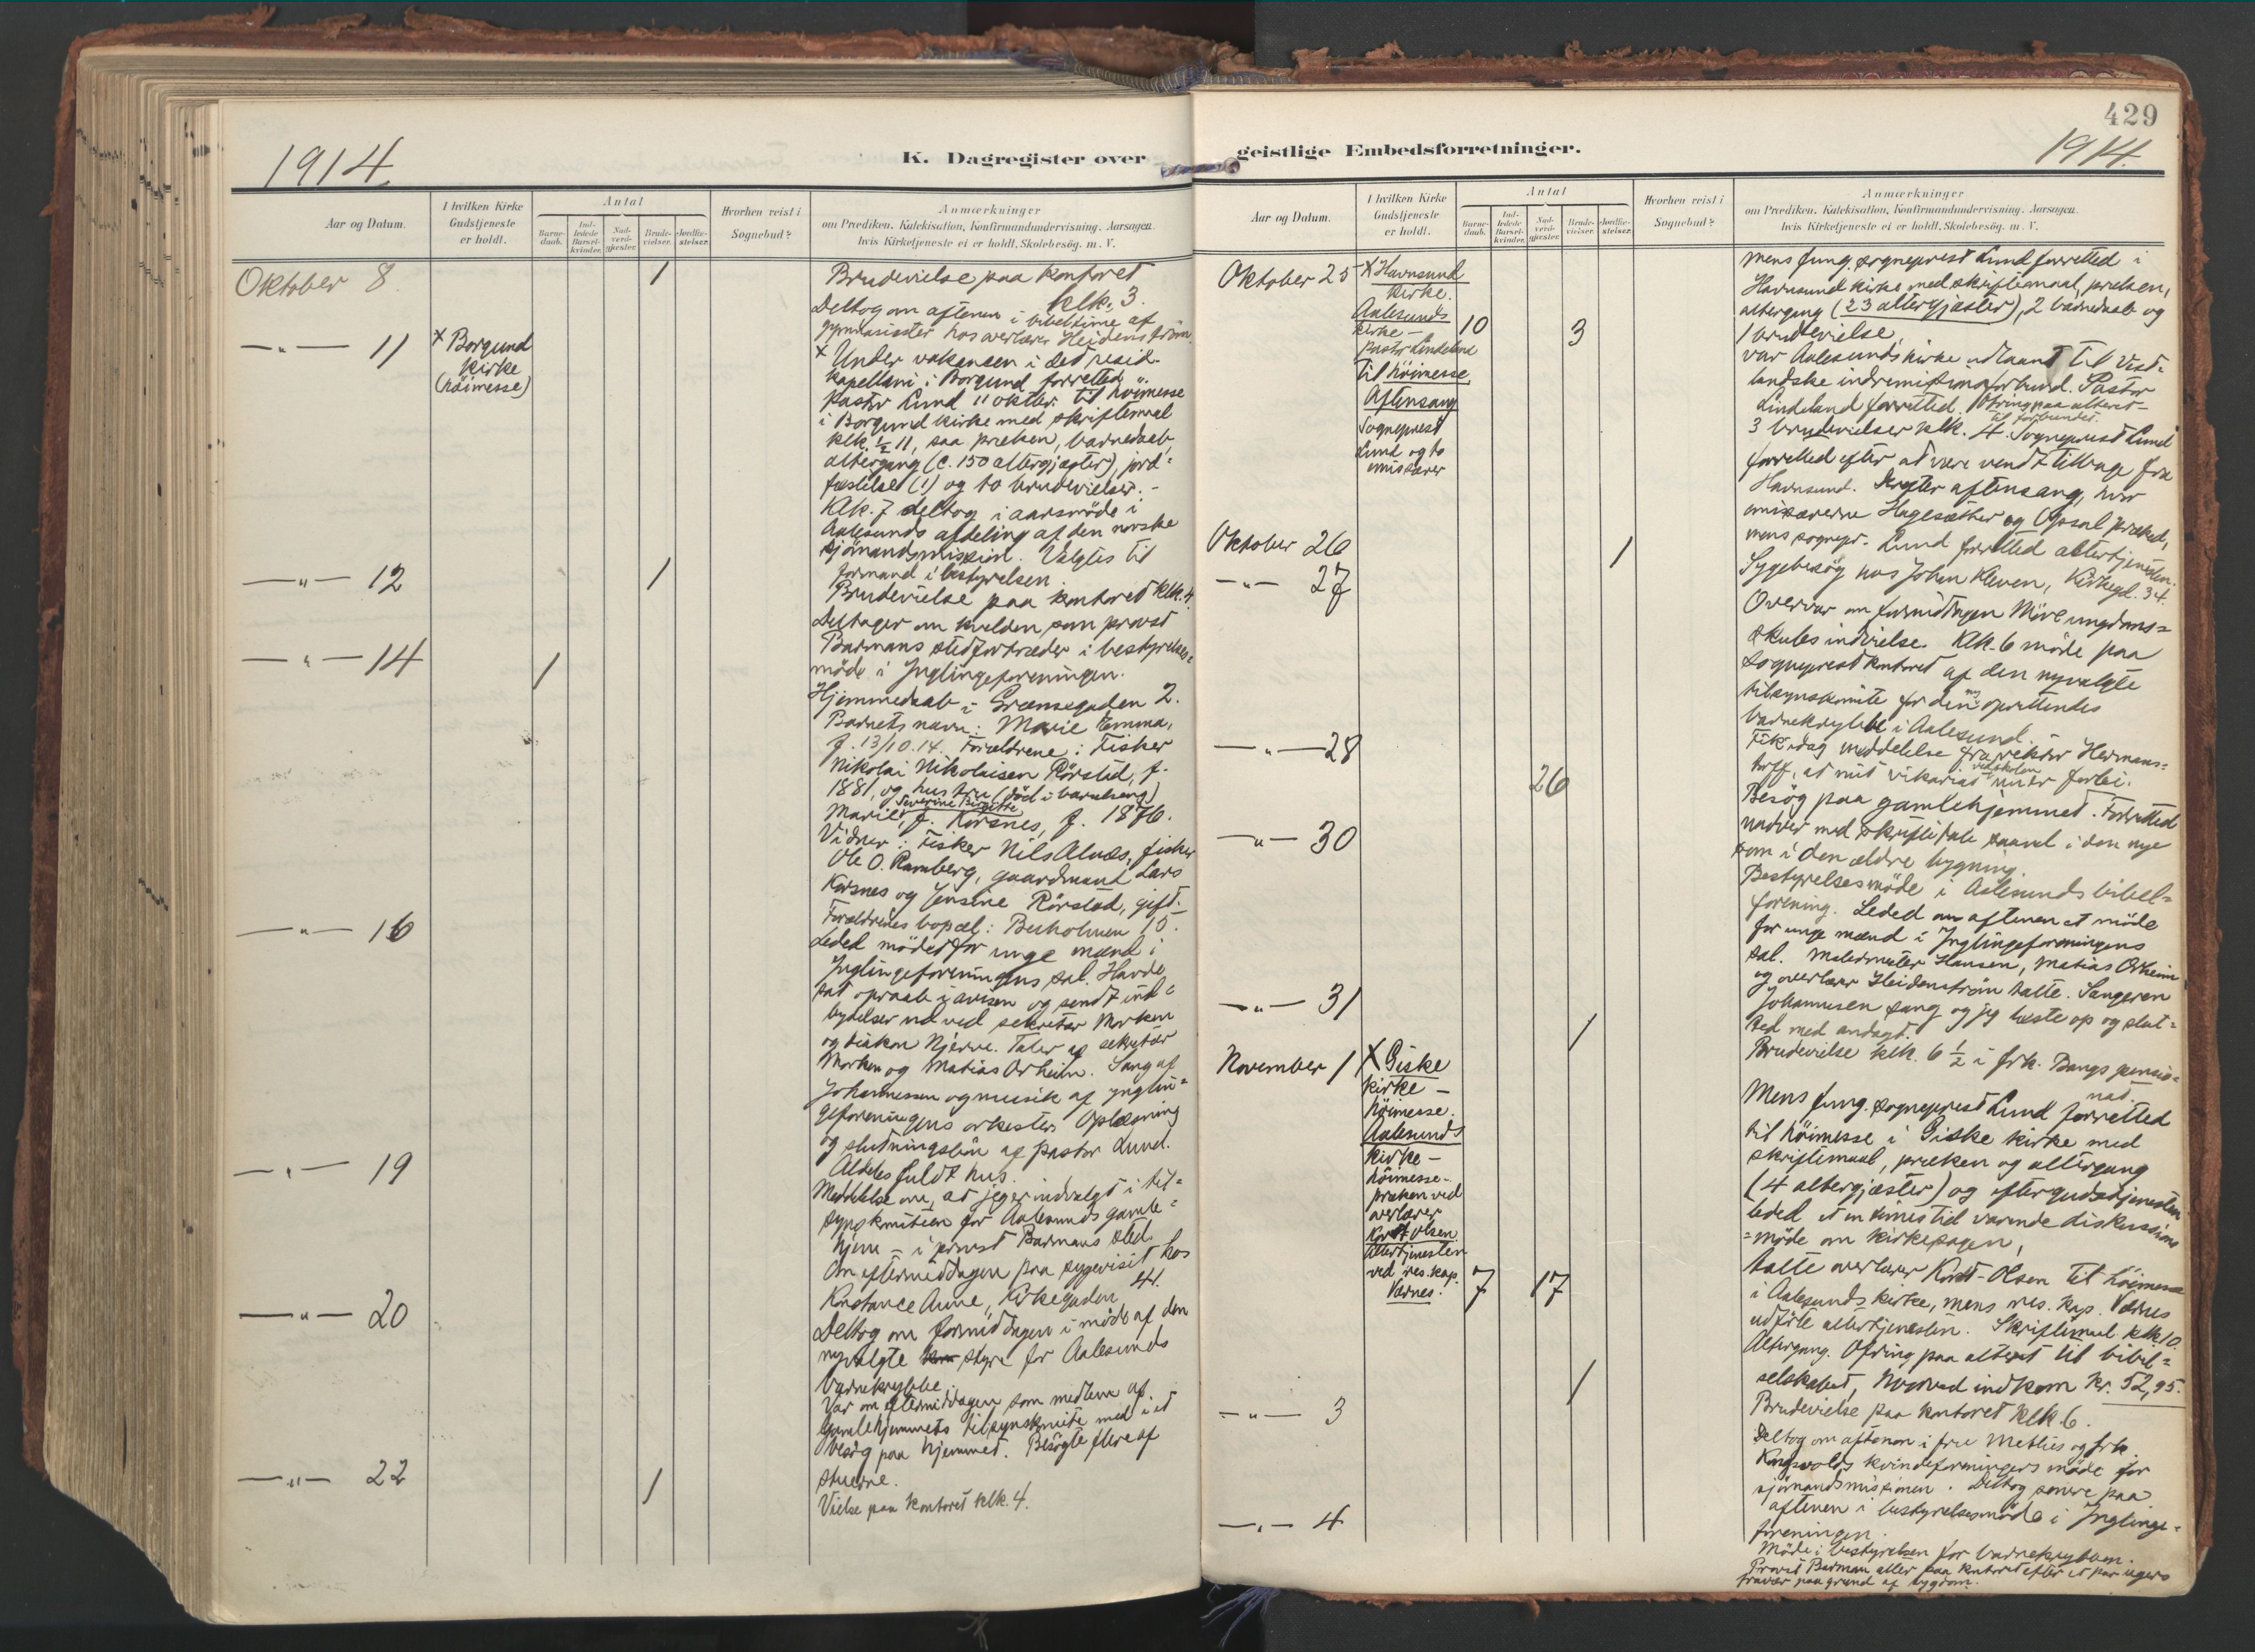 1914.
K. Dagregister over
Aar og Datum.
I hvilken Kirke
Gudstjeneste
er holdt.
Antal
Barne-
daab.
Ind-
ledede
Barsel-
kvinder.
Nad-
verd-
gjester.
Brude-
vielser.
Jordfæ-
stelser.
Hvorhen reist i
Sognebud?
Anmærkninger
om Prædiken, Katekisation, Konfirmandundervisning, Aarsagen,
hvis Kirketjeneste ei er holdt, Skolebesög. m. V.
Oktober 8.
1
Brudevielse paa kontoret
klk. 3.
Deltog om aftenen i bibeltime af
gymnasiaster hos overlærer Heidenström.
—"— 11
x Borgund
kirke
(höimesse)
x Under vakansen i det resid.
kapellani i Borgund forretted
Pastor Lund 11 oktbr. til höimesse
i Borgund kirke med skriftemaal
klk. ½ 11, saa præken, barnedaab,
altergang (c. 150 altergjæster), jord=
fæstelse (1) og to brudevielser. -
Klk. 7 deltog i aarsmöde i
Aalesunds afdeling af den norske
sjömandsmission. Valgtes til
formand i bestyrelsen.
—"— 12
1
Brudevielse paa kontoret klk. 4.
Deltager om kvelden som provst
Barmans stedfortræder i bestyrelses=
möde i Ynglingeforeningen.
—"— 14
1
Hjemmedaab i Grænsegaden 2.
Barnets navn: Marie Emma,
f. 13/10.14. Forældrene: Fisker
Nikolai Nikolaisen Rörstad, f.
1881, og hustru (död i barselseng)
Severine Birgitte
Marie, f. Korsnes, f. 1876.
Vidner: Fisker Nils Alnæs, fisker
Ole O. Ramberg, gaardmand Lars
Korsnes og Jensine Rörstad, gift.
Forældrenes bopæl: Buholmen 15.
—"— 16
Leded möder for unge mænd i
Ynglingeforeningens sal. Havde
sat opraab i avisen og sendt ind=
bydelser ud ved sekretær Morken
og diakon Njerve. Taler af sekretær
Morken og Matias Orheim. Sang af
Johannessen og musik af ynglin=
geforeningens orkester. Oplæsning
og slutningsbön af pastor Lund.
Aldeles fuldt hus.
—"— 19
Meddelelse om, at jeg er indvalgt i til=
synskomiteen for Aalesunds gamle=
hjem - i provst Barmans sted.
Om eftermiddagen paa sygevisit hos
Konstance Aune, Kirkegaden 41.
—"— 20
Deltog om formiddagen i möde af den
nyvalgte styre for Aalesunds
barnekrybbe.
Var om eftermiddagen som medlem af
gamlehjemmets tilsynskomite med i et
besög paa hjemmet. Besögte flere af
stuerne.
—"— 22
1
Vielse paa kontoret klk. 4.
429
1914.
geistlige Embedsforretninger.
Aar og Datum.
I hvilken Kirke
Gudstjeneste
er holdt.
Antal
Barne-
daab.
Ind-
ledede
Barsel-
kvinder.
Nad-
verd-
gjester.
Brude-
vielser.
Jordfæ-
stelser.
Hvorhen reist i
Sognebud?
Anmærkninger
om Prædiken, Katekisation, Konfirmandundervisning, Aarsagen,
hvis Kirketjeneste ei er holdt, Skolebesög. m. V.
Oktober 25
x Havnsund
kirke.
Aalesunds
kirke -
pastor Lindeland
til höimesse.
Aftensang
Sogneprest
Lund og to
emissærer
10
3
Mens fung. sogneprest Lund forretted i
Havnsund kirke med skriftemaal, præken,
altergang (23 altergjæster), 2 barnedaab og
1 brudevielse,
var Aalesunds kirke udlaant til Vest=
landske indremissionsforbund. Pastor
Lindeland forretted. Ofring paa alteret
til forbundet.
3 brudevielser klk. 4. Sogneprest Lund
forretted efter at være vendt tilbage fra
Havnsund. aftensang, hvor
emissærerne Hagesæther og Opsal præked,
mens sognepr. Lund forretted altertjenesten.
Oktober 26
1
Sygebesög hos Johan Kleven, Kirkegd. 34.
—"— 27
Overvar om formiddagen Möre ungdoms=
skules indvielse. Klk. 6 möde paa
sogneprestkontoret af den nyvalgte
tilsynskomite for den ny oprettendes
barnekrybbe i Aalesund.
—"— 28
Fik idag meddelelse fra rektor Hermans=
torff, at mit vikariat ved skolen nu er forbi.
26
Besög paa gamlehjemmet. Forretted
nadver med skriftetale saavel i den nye
som i den ældre bygning.
—"— 30
Bestyrelsesmöde i Aalesunds bibel=
forening. Leded om aftenen et möde
for unge mænd i Ynglingeforeningens
sal. Malermester Hansen, Matias Orheim
og overlærer Heidenström talte. Sangeren
Johannesen sang og jeg læste op og slut=
ted med andagt.
—"— 31
1
Brudevielse klk. 6 ½ i frk. Bangs pensio=
nat.
November 1
x Giske
kirke -
höimesse.
Aalesunds
kirke -
höimesse-
præken ved
overlærer
Korst Olsen
Altertjenesten
ved res. kap.
Værnes.
7
17
Mens fung. sogneprest Lund forretted
til höimesse i Giske kirke med
skriftemaal, præken og altergang
(4 altergjæster) og eftergudstjenesten
leded et en times tid varende diskussions
=möde om kirkesagen,
talte overlærer Korst-Olsen til höimesse
i Aalesunds kirke, mens res. kap. Værnes
udförte altertjenesten. Skriftemaal klk. 10.
Altergang. Ofring paa alteret til bibel=
selskabet, hvorved indkom kr. 52,95.
1
Brudevielse paa kontoret klk. 6.
—"— 3
Deltog om aftenen i fru og frk.
Kongsvolds kvindeforeningers möde for
sjömandsmissionen. Deltog senere paa
aftenen i bestyrelsesmöde i Ynglinge=
foreningen.
—"— 4
Möde i bestyrelsen for barnekrybben.
Provst Barman atter paa kontoret efter et par ugers
fravær paa grund af sygdom.